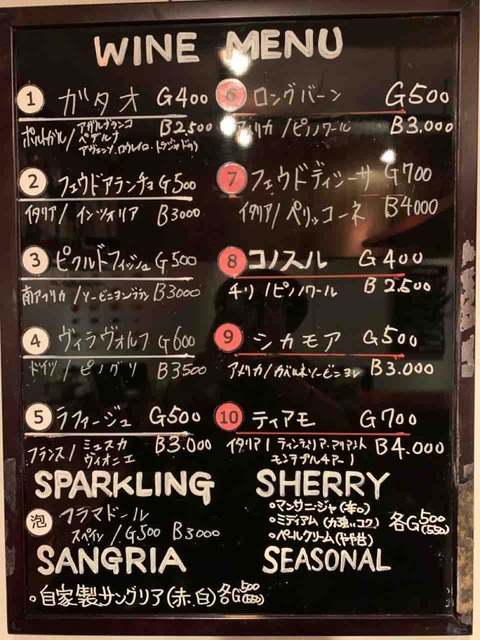 WINE MENU
1 ガタオ G400
ポルトガル/アザルブランコ B2,500
ペデルナ
2 フェウドアランチョ G500
イタリア/インツォリア B3000
3 ピクルドフィッシュ G500
南アフリカ/ソービニヨンブラン B3000
4 ヴィラヴォルフ G600
ドイツ/ピノグリ B3500
5 ラファージュ G500
フランス/ミュスカ B3.000
ヴィオニエ
6 ロングバーン G500
アメリカ/ピノノワール B3.000
7 フェウドディシーサ G700
イタリア/ペリッコーネ B4000
8 コノスル G400
チリ/ピノノワール B2.500
9 シカモア G500
アメリカ/カベルネソービニヨン B3.000
10 ティアモ G700
イタリア/ B4.000
SPARKLING
泡 フラマドール
スペイン/G500 B3000
SANGRIA
・自家製サングリア(赤.白)各G500
SHERRY
・マンサニージャ(辛口)
・ミディアム(力強いコク) 各G500
・ペールクリーム(やや甘)
SEASONAL